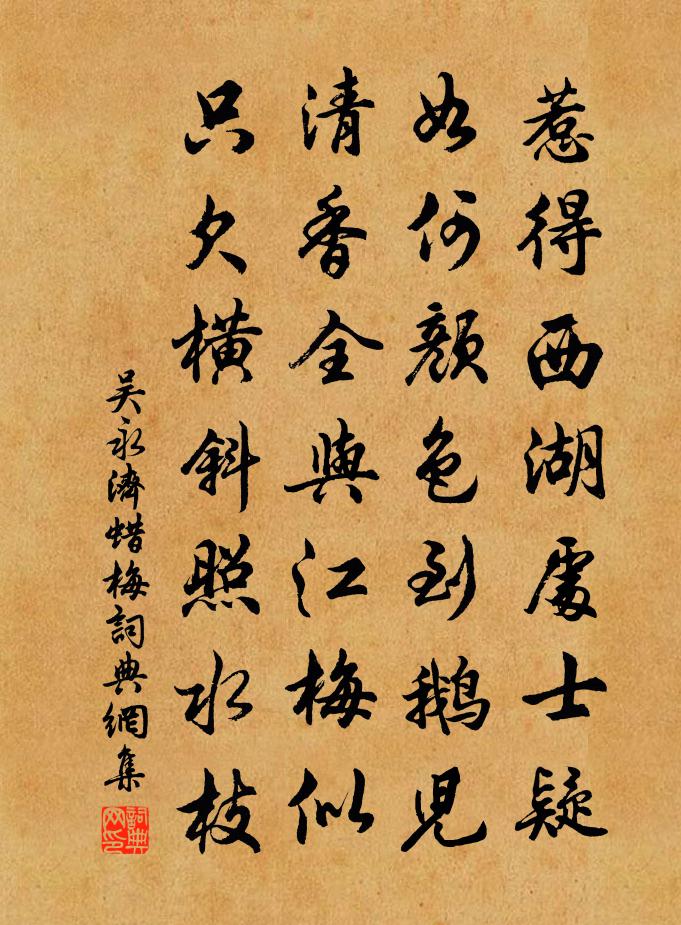 惹得西湖處士疑
如何顔色到鹅兒
清香全與江梅似
只欠橫斜照水枝
吴永濟蜡梅詞典網集
詞典网印